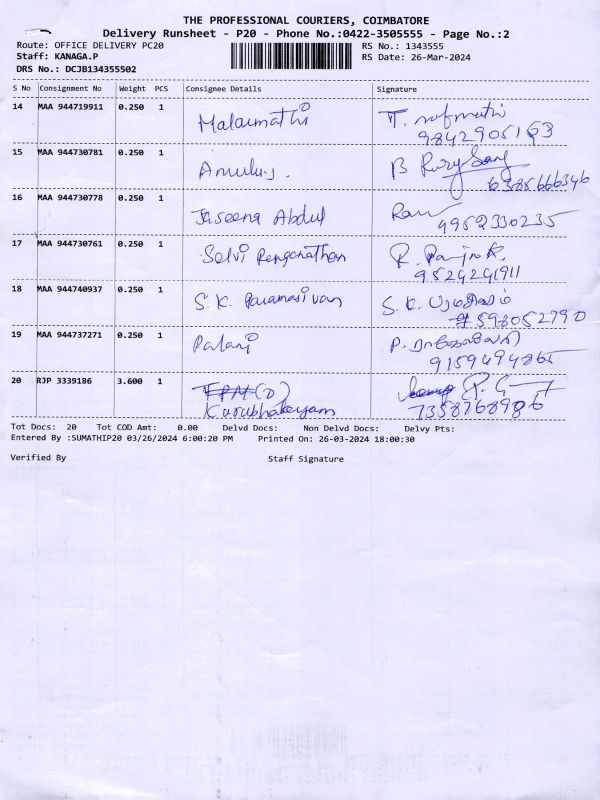 THE PROFESSIONAL COURIERS, COIMBATORE
Delivery Runsheet - P20 - Phone No.:0422-3505555 - Page No.:2
Route: OFFICE DELIVERY PC20 RS No.: 1343555
Staff: KANAGA.P RS Date: 26-Mar-2024
DRS No.: DCJB134355502
S No Consignment No Weight PCS Consignee Details Signature
14 MAA 944719911 0.250 1 Malarmathi T.
9842905163
15 MAA 944730781 0.250 1 Amuluj. B
6385666346
16 MAA 944730778 0.250 1 Jaseena Abdul Ravi
9952330235
17 MAA 944730761 0.250 1 Selvi Renganathan R.
9524241911
18 MAA 944740937 0.250 1 S.K. Paramasivan S.K.
9598052790
19 MAA 944737271 0.250 1 Palani P.
9159494865
20 RJP 3339186 3.600 1 P.
Kurubhalayam 7358768986
Tot Docs: 20 Tot COD Amt: 0.00 Delvd Docs: Non Delvd Docs: Delvy Pts:
Entered By :SUMATHIP20 03/26/2024 6:00:20 PM Printed On: 26-03-2024 18:00:30
Verified By Staff Signature